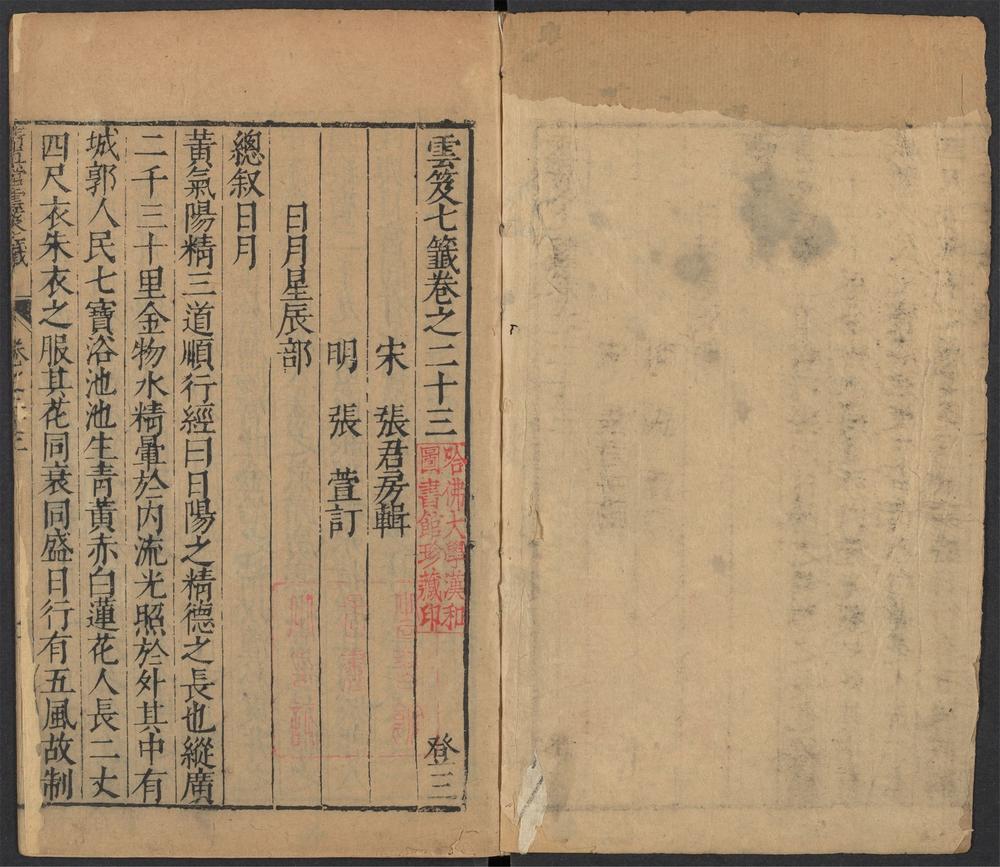 雲笈七籤卷之二十三
登三
宋 張君房輯
明 張萱訂
日月星辰部
總叙日月
黃氣陽精三道順行經曰日陽之精德之長也縱廣
二千三十里金物水精暈於內流光照於外其中有
城郭人民七寶浴池池生青黃赤白蓮花人長二丈
四尺衣朱衣之服其花同衰同盛日行有五風故制
哈佛大學漢和
圖書館珍藏印